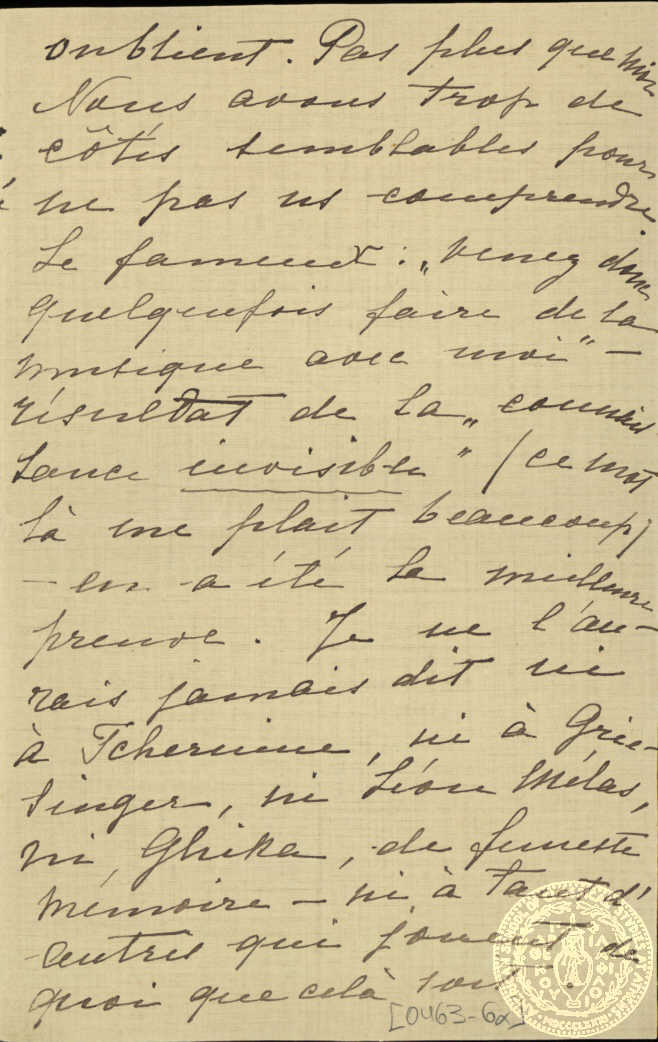 oublient. Pas plus que moi
Nous avons trop de
côtés semblables pour
ne pas ns comprendre.
Le fameux: „Venez donc
quelquefois faire de la
musique avec moi" —
résultat de la „connais
sance invisible" (ce mot
là me plait beaucoup)
— en a été la meilleure
preuve. Je ne l'au-
rais jamais dit ni
à Tchernine, ni à Grie-
singer, ni Léon Mélas,
ni Ghika, de funeste
mémoire — ni à tant d'
autres qui jouent de
quoi que celà soit.
[0463-6α]